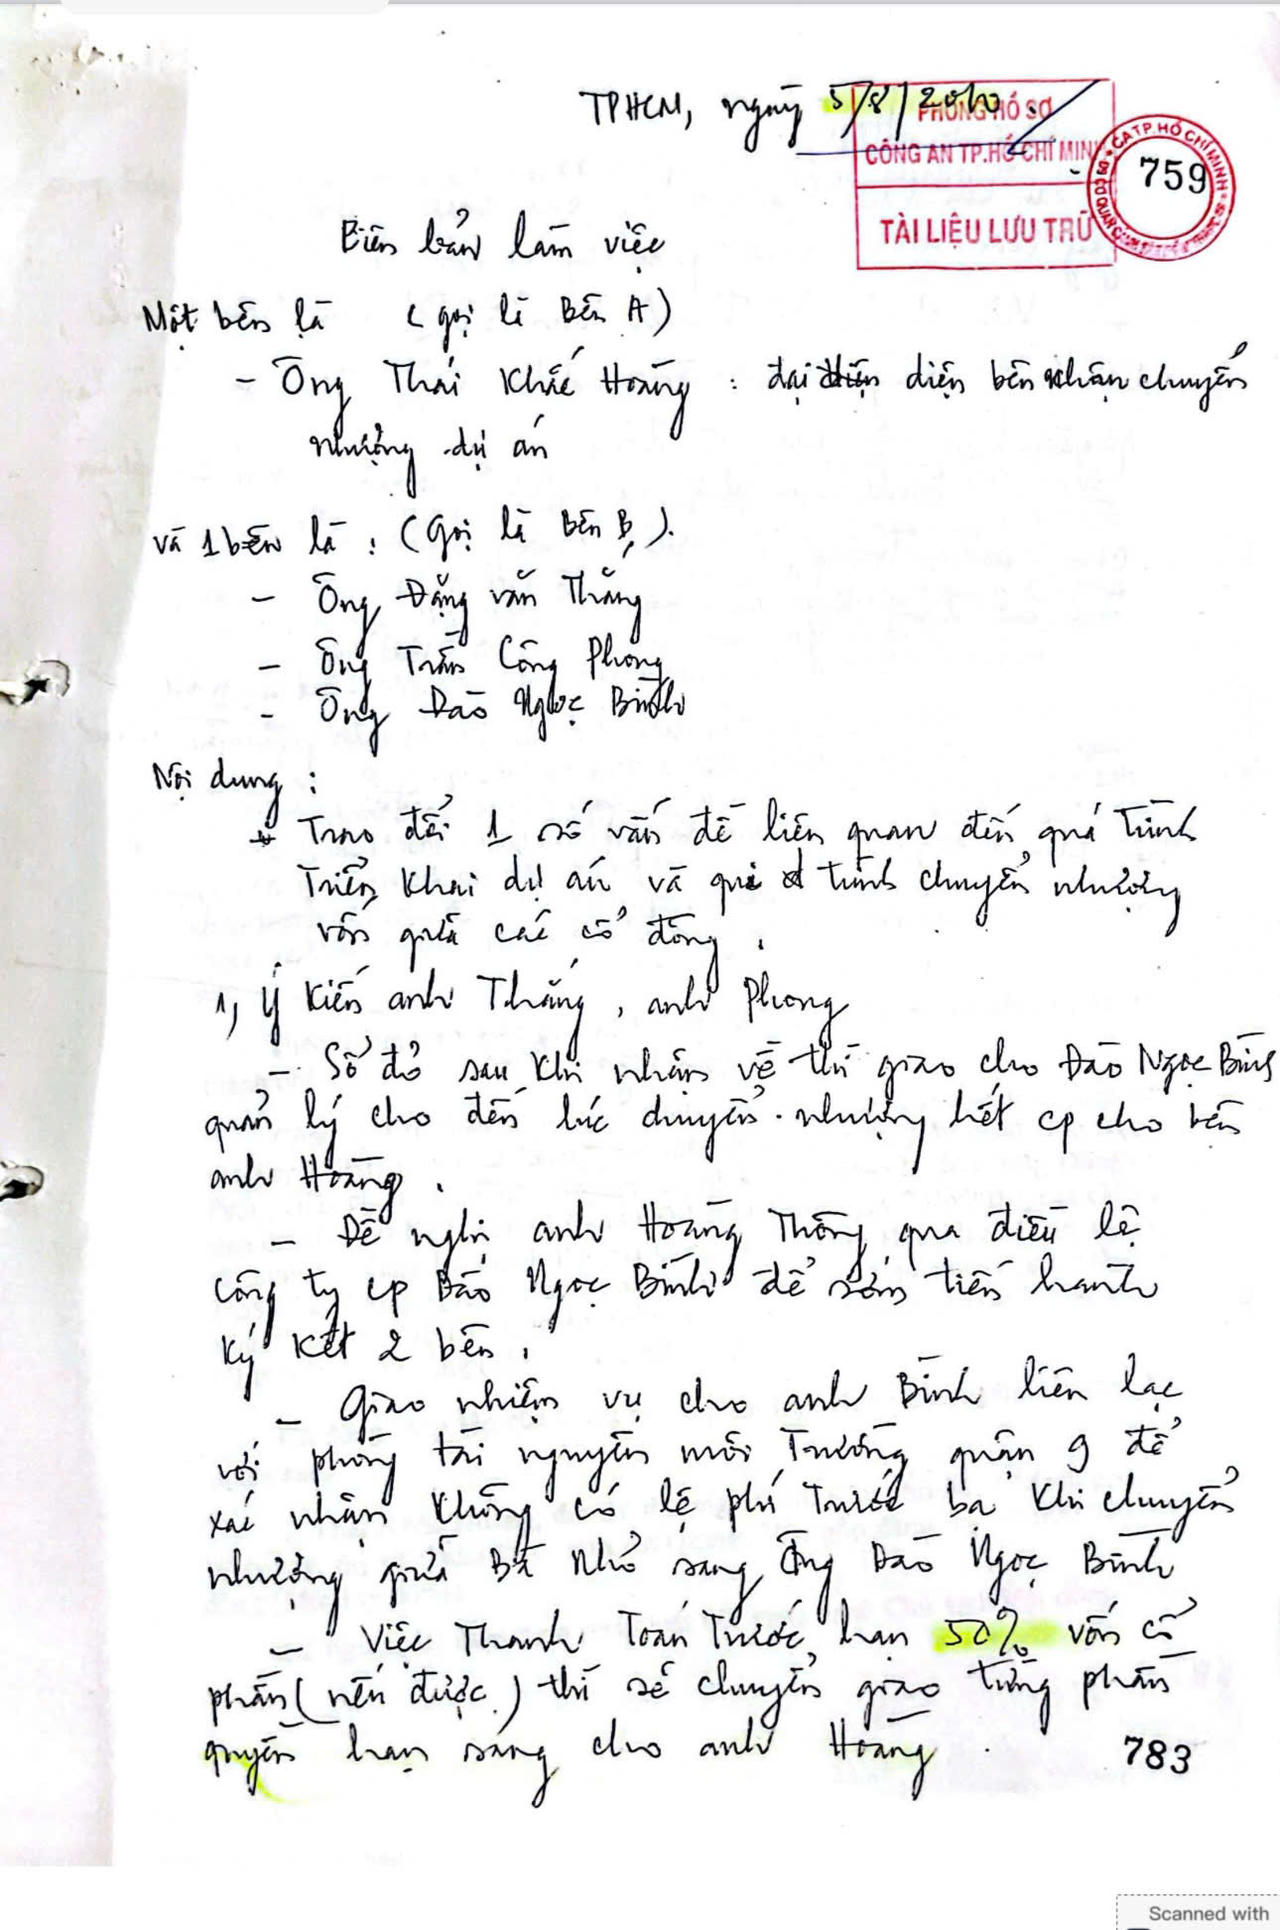 TPHCM, ngày 5/8/2010
PHÒNG HỒ SƠ
CÔNG AN TP.HỒ CHÍ MINH
TÀI LIỆU LƯU TRỮ
CA TP.HỒ CHÍ MINH
759
Biên bản làm việc
Một bên là (gọi là Bên A)
- Ông Thái Khắc Hoàng : đại diện bên nhận chuyển
nhượng dự án
và 1 bên là : (Gọi là Bên B).
- Ông Đặng văn Thắng
- Ông Trần Công Phong
- Ông Đào Ngọc Bình
Nội dung :
* Trao đổi 1 số vấn đề liên quan đến quá trình
Triển khai dự án và quá trình chuyển nhượng
vốn giữa các cổ đông.
1, Ý kiến anh Thắng, anh Phong
- Sổ đỏ sau khi nhận về thì giao cho Đào Ngọc Bình
quản lý cho đến lúc chuyển nhượng hết cp cho bên
anh Hoàng.
- Đề nghị anh Hoàng Thông qua điều lệ
Công ty cp Bảo Ngọc Bình để sớm tiến hành
ký kết 2 bên.
- Giao nhiệm vụ cho anh Bình liên lạc
với phòng tài nguyên môi Trường quận 9 để
xác nhận không có lệ phí Trước bạ khi chuyển
nhượng giữa Bà Nhỏ sang Ông Đào Ngọc Bình
- Việc Thanh Toán Trước hạn 50% vốn cổ
phần (nếu được) thì sẽ chuyển giao từng phần
quyền hạn sang cho anh Hoàng.
783
Scanned with